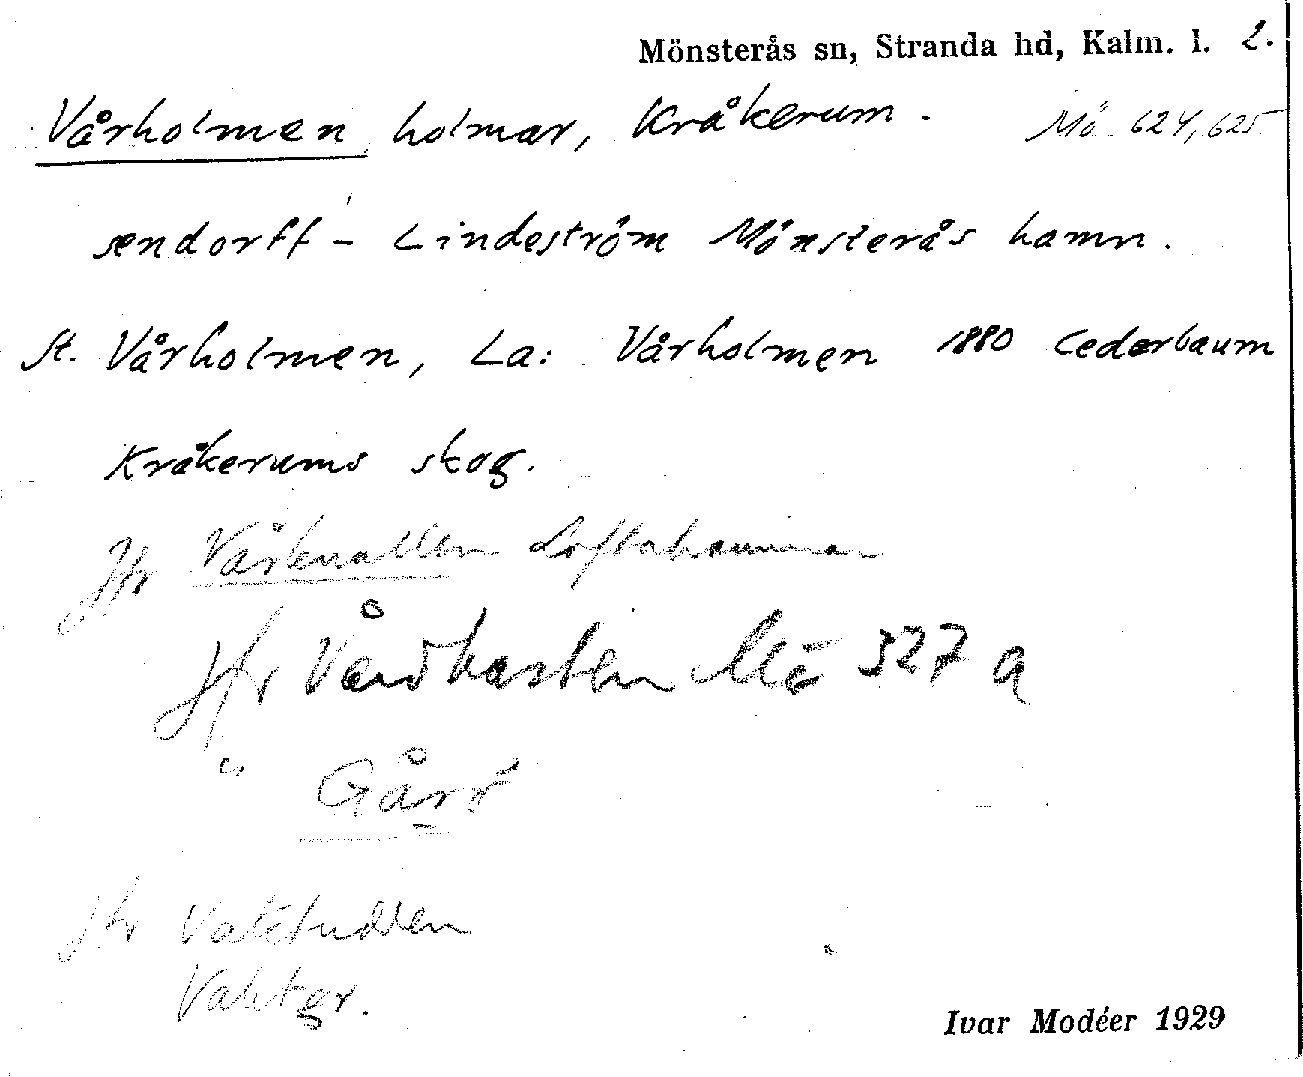 Mönsterås sn, Stranda hd, Kalm. l. 2.
Vårholmen holmar, Kråkerum. Mö 624, 625
sendorff - Lindeström Mönsterås hamn.
St. Vårholmen, La: Vårholmen 1880 Cederbaum
Kråkerums skog.
Jfr Loftahammar
Jfr Vårdkasten Mö 527 a
" Gårö
Jfr Vaktudden
Vakt
Ivar Modéer 1929